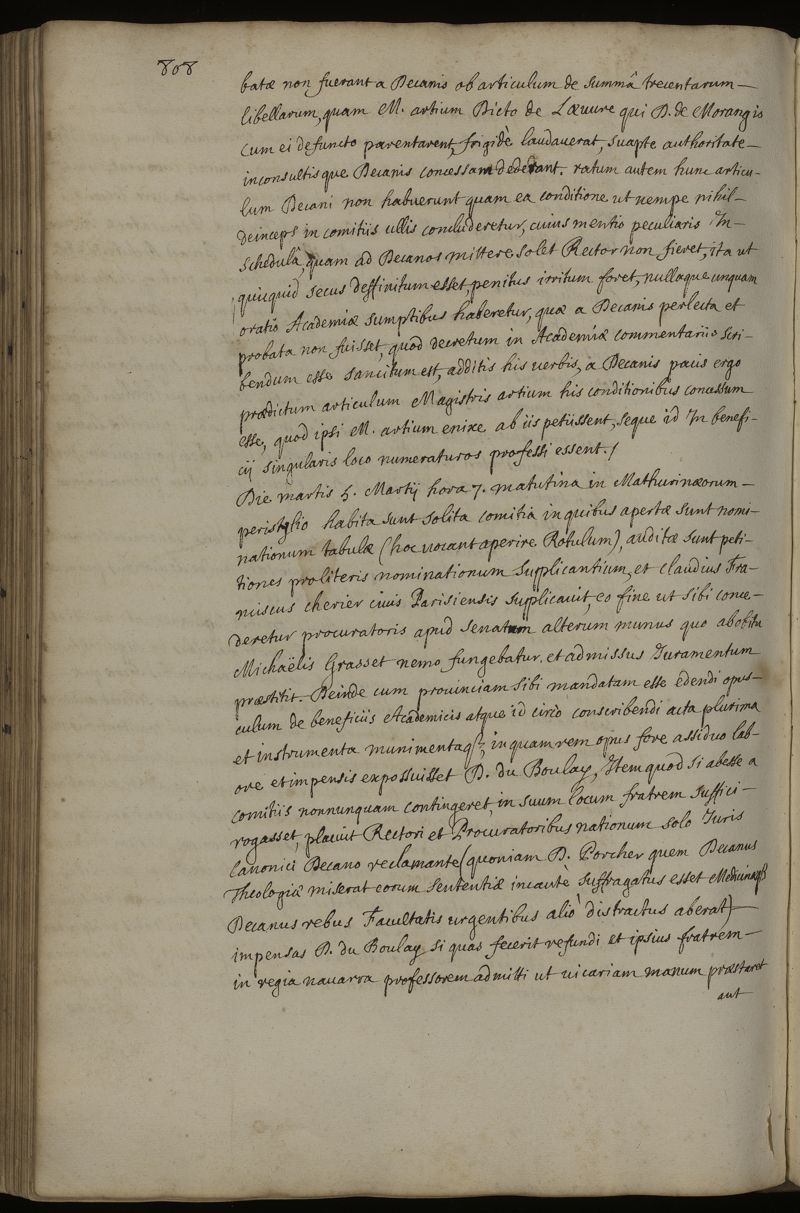 808
batæ non fuerant a Decanis ob articulum de summâ trecentarum
libellarum, quam M. artium Dicto de Lœuvre qui D. de Morangis
cum ei defuncto parentarent, frigidè laudauerat, suapte authoritate
inconsultisque Decanis concessam dederant. ratum autem hunc articu-
lum Decani non habuerunt quam ea conditione ut nempe nihil
deinceps in comitiis ullis concluderetur, cuius mentio peculiaris In
schedulâ, quam ad Decanos mittere solet Rector non fieret, ita ut
quicquid secus deffinitum esset, penitus irritum foret, nullaque unquam
oratio Academiæ sumptibus haberetur, quæ a Decanis perlecta et
probata non fuisset, quod decretum in Academiæ commentariis scri-
bendum esse sancitum est, additis his uerbis, a Decanis pacis ergo
prædictum articulum Magistris artium his conditionibus concessum
esse, quod ipsi M. artium enixe ab iis petiissent, seque id In benefi-
cij singularis loco numeraturos professi essent./
Die martis 5. Martij hora 7. matutina in Mathurinæorum
peristylio habita sunt solita comitia in quibus apertæ sunt nomi-
nationum tabulæ (hoc uocant aperire Rotulum), auditæ sunt peti-
tiones pro literis nominationum supplicantium, et claudius Fra-
nciscus cherier ciuis Parisiensis supplicauit, eo fine ut sibi conce-
deretur procuratoris apud senatum alterum munus quo ab obitu
Michaëlis Grasset nemo fungebatur, et admissus Iuramentum
præstitit. Deinde cum prouinciam sibi mandatam esse edendi opus-
culum de beneficiis Academicis atque id circo conscribendi acta plurima
et instrumenta munimentaq;, in quam rem opus fore assiduo lab-
ore et impensis exposuisset D. du Boulay, Item quod si abesse a
comitiis nonnunquam contingeret, in suum locum fratrem suffici
rogasset, placuit Rectori et Procuratoribus nationum solo Iuris
Canonici Decano reclamante (quoniam D. Porcher quem Decanus
Theologiæ miserat eorum sententiæ incautè suffragatus esset Medicinæq;
Decanus rebus Facultatis urgentibus aliò distractus aberat)
impensas D. du Boulay si quas fecerit refundi et ipsius fratrem
in regia nauarra professorem admitti ut uicariam manum præstaret
aut